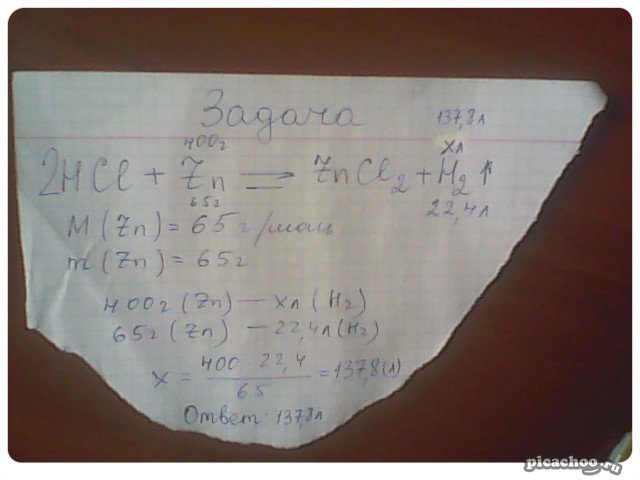 Задача
400г 137,8л
хл
2HCl + Zn = ZnCl2 + H2↑
65г 22,4л
M(Zn) = 65г/моль
m(Zn) = 65г
400г (Zn) — хл (H2)
65г (Zn) — 22,4л (H2)
x = 400 22,4 / 65 = 137,8(л)
Ответ: 137,8л
picachoo.ru